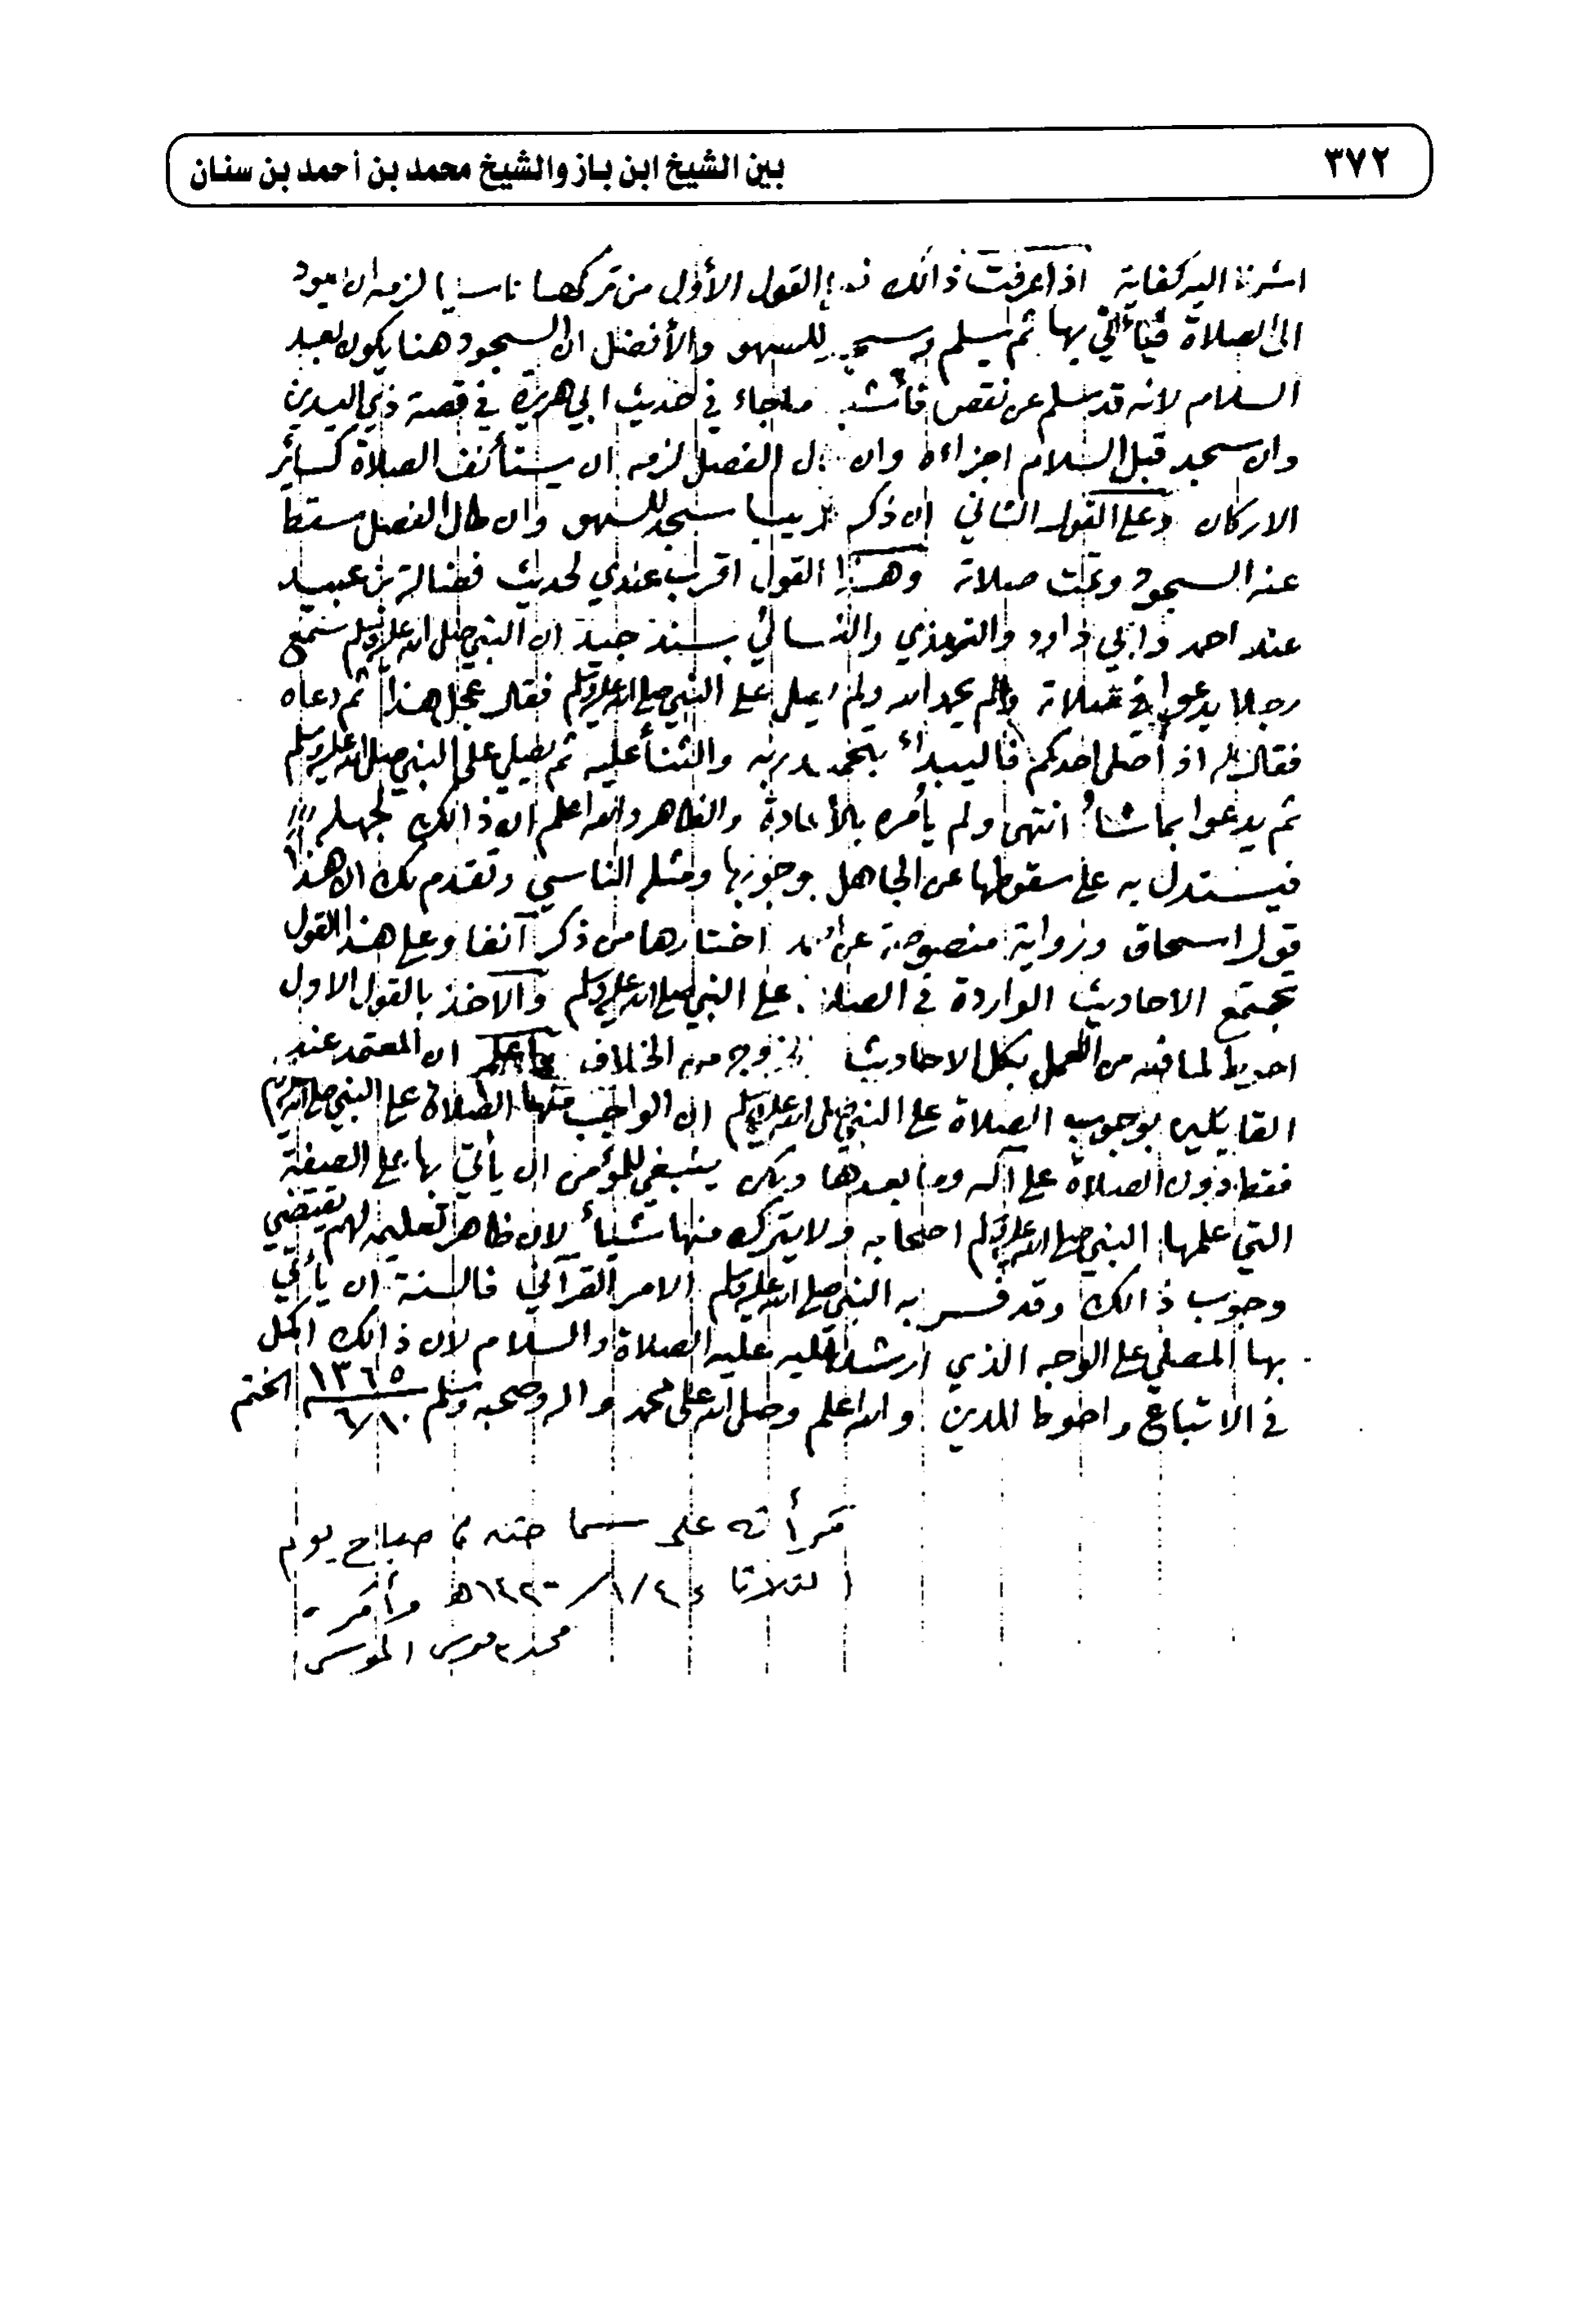 ٣٧٢
بين الشيخ ابن باز والشيخ محمد بن أحمد بن سنان
اشرنا اليه كفاية اذا عرفت ذالك القول الأول من تركها ناسيا لزمه ان يعود
الى الصلاة فيأتي بها ثم يسلم ويسجد للسهو والأفضل ان السجود هنا يكون بعد
السلام لانه قد سلم عن نقص فأشبه ماجاء في حديث ابي هريرة في قصة ذي اليدين
وان سجد قبل السلام اجزاءه وان الفصل لزمه ان يستأنف الصلاة كسائر
الاركان وعلى القول الثاني ان ذكر قريبا سجد للسهو وان طال الفصل سقط
عنه السجود وتمت صلاته وهذا القول اقرب عندي لحديث فضالة بن عبيد
عند احمد وابي داود والترمذي والنسائي بسند جيد ان النبي صلى الله عليه وسلم سمع
رجلا يدعوا في صلاته ولم يحمد الله ولم يصلي على النبي صلى الله عليه وسلم فقال عجل هذا ثم دعاه
فقال له اذا صلى احدكم فاليبداء بتحميد ربه والثنأ عليه ثم يصلي على النبي صلى الله عليه وسلم
ثم يدعوا بماشاءُ انتهى ولم يأمره بالأعادة والظاهر والله اعلم ان ذالك لجهله
فيستدل به على سقوطها عن الجاهل وجوبها ومثله الناسي وتقدم لك ان هذا
قول اسحاق ورواية منصوصة عن احمد اختارها من ذكر آنفا وعلى هذا القول
تجتمع الاحاديث الواردة في الصلاة على النبي صلى الله عليه وسلم والآخذ بالقول الاول
احوط لما فيه من العمل بكل الاحاديث والخروج من الخلاف ان المعتمد عند
القايلين بوجوب الصلاة على النبي صلى الله عليه وسلم ان الواجب منها الصلاة على النبي صلى الله عليه وسلم
فقط دون الصلاة على آله وما بعدها ولكن ينبغي للمؤمن ان يأتي بها على الصيغة
التي علمها النبي صلى الله عليه وسلم اصحابه ولا يترك منها شيأ لان ظاهر تعليمه لهم يقتضي
وجوب ذالك وقد فسر به النبي صلى الله عليه وسلم الامر القرآني فالسنة ان يأتي
بها المصلي على الوجه الذي ارشد اليه عليه الصلاة والسلام لان ذالك اكمل
في الاتباع واحوط للدين والله اعلم وصلى الله على محمد واله وصحبه وسلم ١٣٦٥ / ٦/١٠ الختم
قرأته على سماحته صباح يوم
الثلاثا ١٤٢٠/١/٢٤هـ وأقره
محمد موسى الموسى